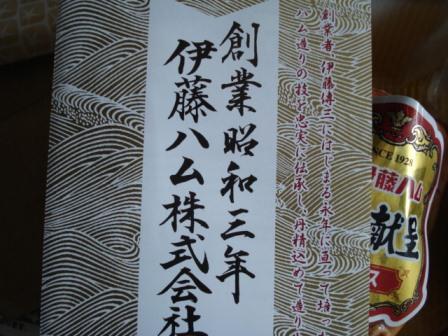 創業者、伊藤傳三にはじまる永年に亘って培
ハム造りの技を忠実に伝承し、丹精込めて造り
創業昭和三年
伊藤ハム株式会社
SINCE 1928
伊藤ハム
献呈
ス